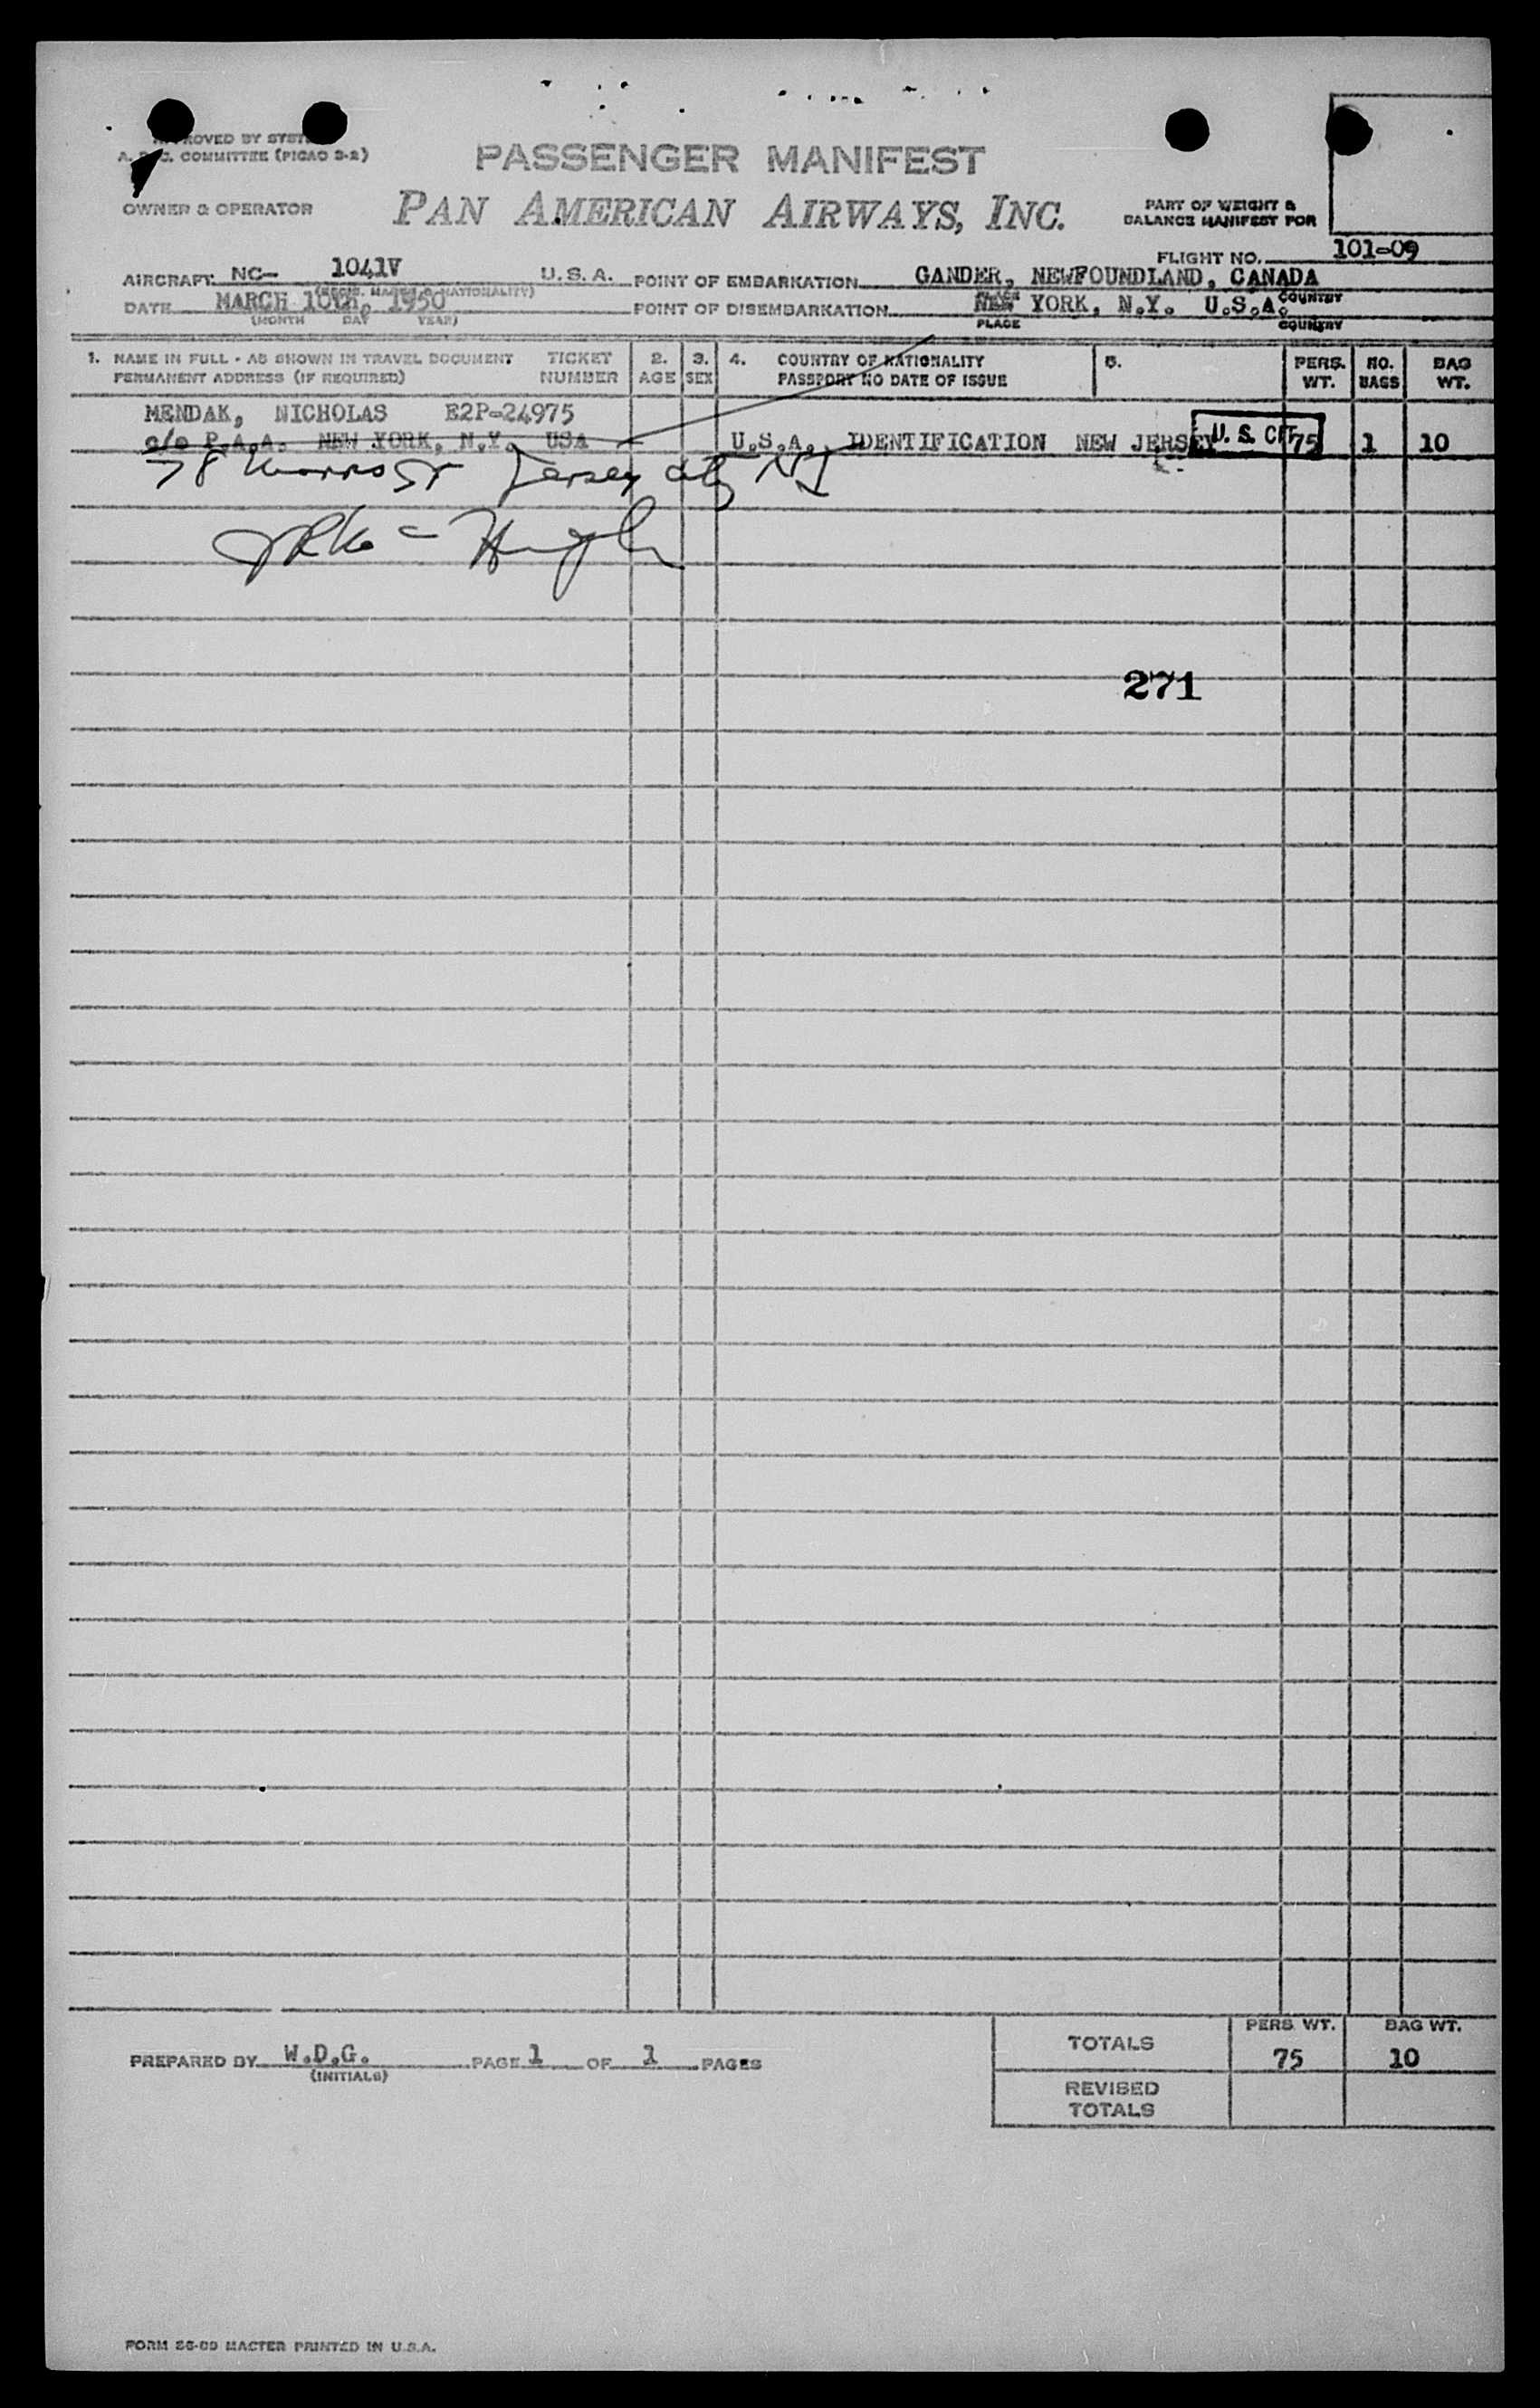 APPROVED BY SYSTEM
A. COMMITTEE (PICAO 3-2)
PASSENGER MANIFEST
OWNER & OPERATOR
PAN AMERICAN AIRWAYS, INC.
PART OF WEIGHT &
BALANCE MANIFEST FOR
FLIGHT NO. 101-09
AIRCRAFT NC- 1041V U.S.A. POINT OF EMBARKATION GANDER, NEWFOUNDLAND, CANADA
(REGIS. MARKS & NATIONALITY) PLACE COUNTRY
DATE MARCH 10th, 1950 POINT OF DISEMBARKATION NEW YORK, N.Y. U.S.A.
(MONTH DAY YEAR) PLACE COUNTRY
1. NAME IN FULL - AS SHOWN IN TRAVEL DOCUMENT TICKET 2. 3. 4. COUNTRY OF NATIONALITY 5. PERS. NO. BAG
PERMANENT ADDRESS (IF REQUIRED) NUMBER AGE SEX PASSPORT NO DATE OF ISSUE WT. BAGS WT.
MENDAK, NICHOLAS E2P-24975
c/o P.A.A. NEW YORK, N.Y. USA U.S.A. IDENTIFICATION NEW JERSEY U. S. CIT 75 1 10
78 St Jersey City NJ
271
TOTALS PERS. WT. BAG WT.
75 10
PREPARED BY W.D.G. PAGE 1 OF 1 PAGES
(INITIALS)
REVISED
TOTALS
FORM PRINTED IN U.S.A.